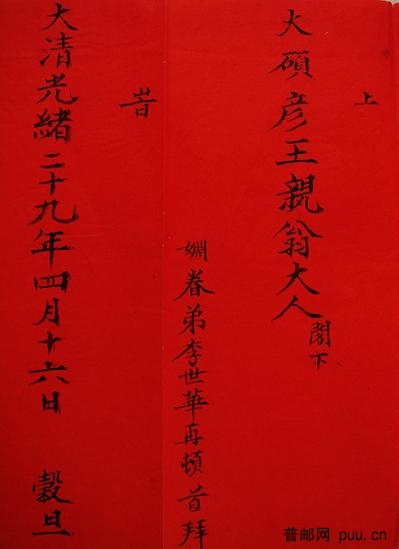 上
大碩彥王親翁大人閣下
姻眷弟李世華再頓首拜
旹
大清光緒二十九年四月十六日 榖旦
普邮网 puu.cn